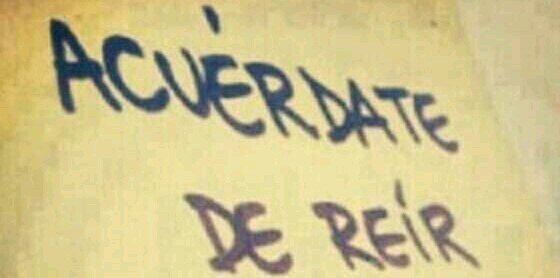 ACUÉRDATE
DE REÍR